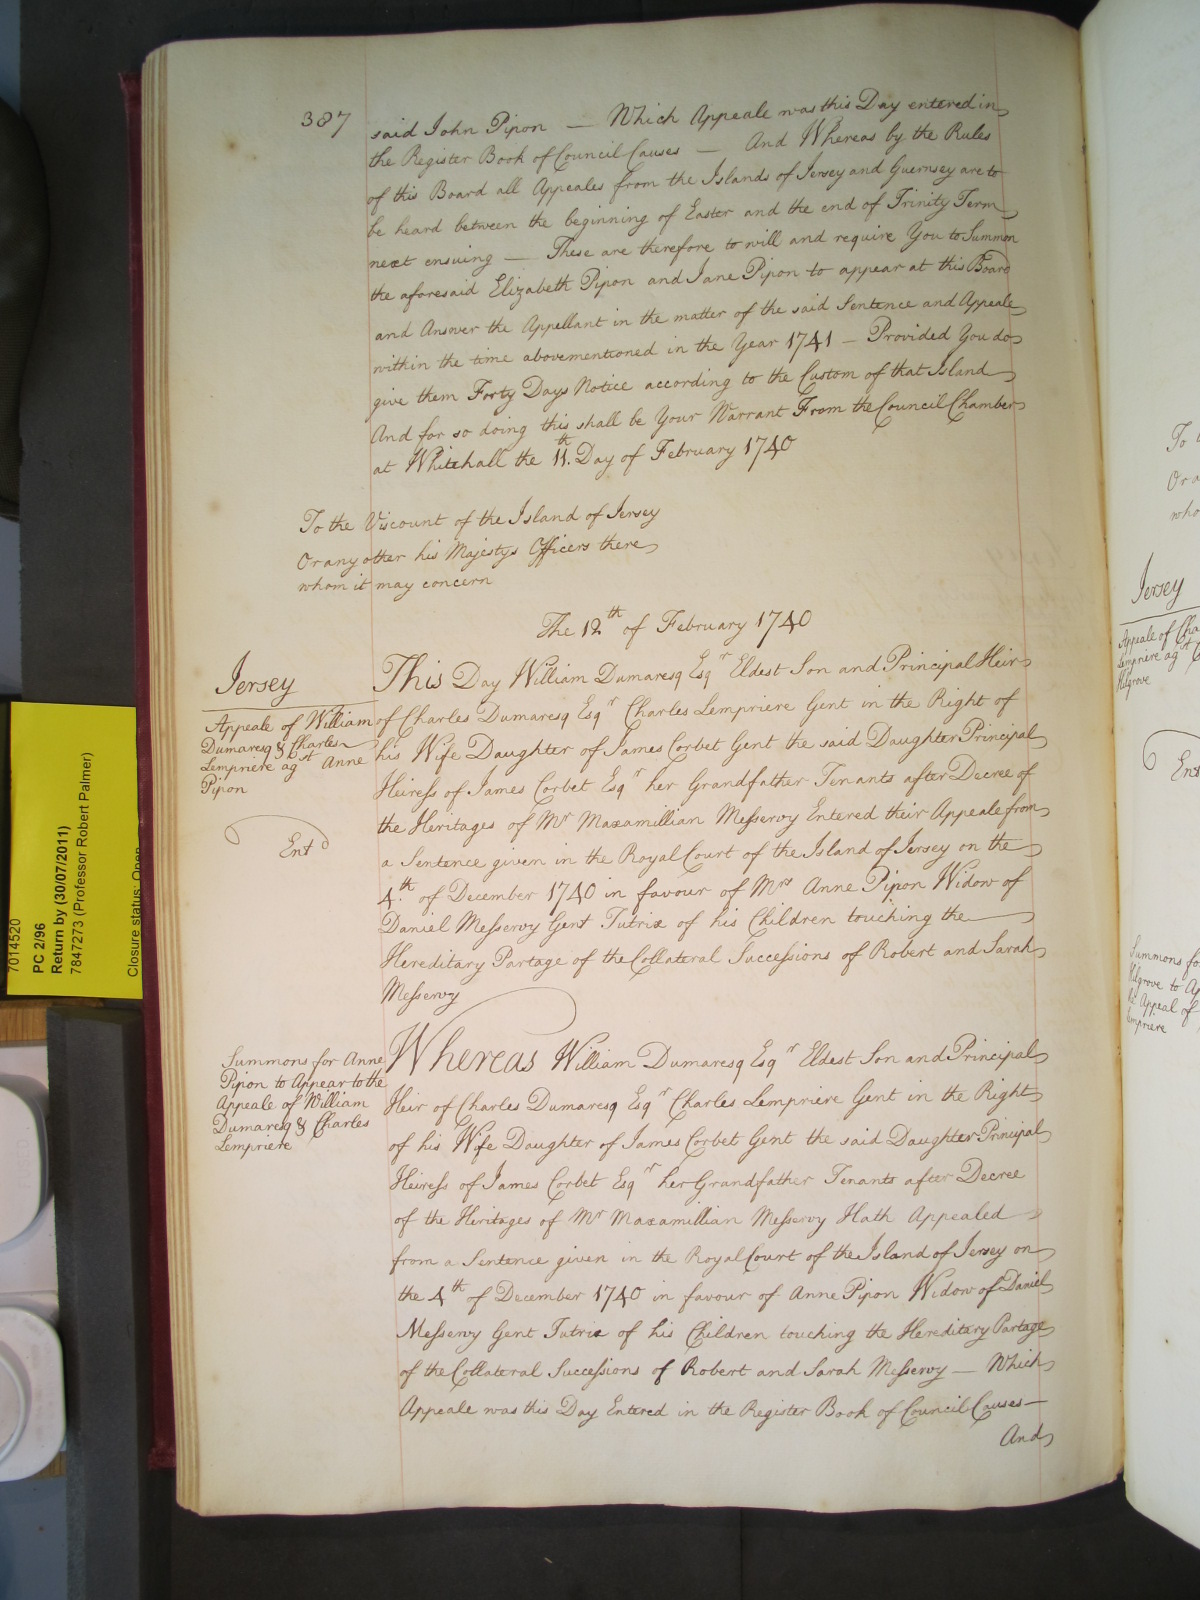 387
said John Pipon — Which Appeale was this Day entered in
the Register Book of Council Causes — And Whereas by the Rules
of this Board all Appeales from the Islands of Jersey and Guernsey are to
be heard between the beginning of Easter and the end of Trinity Term
next ensuing — These are therefore to will and require You to Summon
the aforesaid Elizabeth Pipon and Jane Pipon to appear at this Board
and Answer the Appellant in the matter of the said Sentence and Appeale
within the time abovementioned in the Year 1741 — Provided You do
give them Forty Days Notice according to the Custom of that Island
And for so doing this shall be Your Warrant From the Council Chamber
at Whitehall the 11.th Day of February 1740
To the Viscount of the Island of Jersey
Or any other his Majestys Officers there
whom it may concern
The 12th of February 1740
Jersey
Appeale of William
Dumaresq & Charles
Lempriere agst Anne
Pipon
Entd
This Day William Dumaresq Esqr Eldest Son and Principal Heir
of Charles Dumaresq Esqr Charles Lempriere Gent in the Right of
his Wife Daughter of James Corbet Gent the said Daughter Principal
Heiress of James Corbet Esqr her Grandfather Tenants after Decree of
the Heritages of Mr Maxamillian Messervy Entered their Appeale from
a Sentence given in the Royal Court of the Island of Jersey on the
4.th of December 1740 in favour of Mrs Anne Pipon Widow of
Daniel Messervy Gent Tutrix of his Children touching the
Hereditary Partage of the Collateral Successions of Robert and Sarah
Messervy
Summons for Anne
Pipon to Appear to the
Appeale of William
Dumaresq & Charles
Lempriere
Whereas William Dumaresq Esqr Eldest Son and Principal
Heir of Charles Dumaresq Esqr Charles Lempriere Gent in the Right
of his Wife Daughter of James Corbet Gent the said Daughter Principal
Heiress of James Corbet Esqr her Grandfather Tenants after Decree
of the Heritages of Mr Maxamillian Messervy Hath Appealed
from a Sentence given in the Royal Court of the Island of Jersey on
the 4th of December 1740 in favour of Anne Pipon Widow of Daniel
Messervy Gent Tutrix of his Children touching the Hereditary Partage
of the Collateral Successions of Robert and Sarah Messervy — Which
Appeale was this Day Entered in the Register Book of Council Causes —
And
7014520
PC 2/96
Return by (30/07/2011)
7847273 (Professor Robert Palmer)
Closure status: Open
To
Or a
who
Jersey
Appeale of Cha
Lempriere agst
Hilgrove
Ent
Summons fo
Hilgrove to Ap
Appeal of
Lempriere